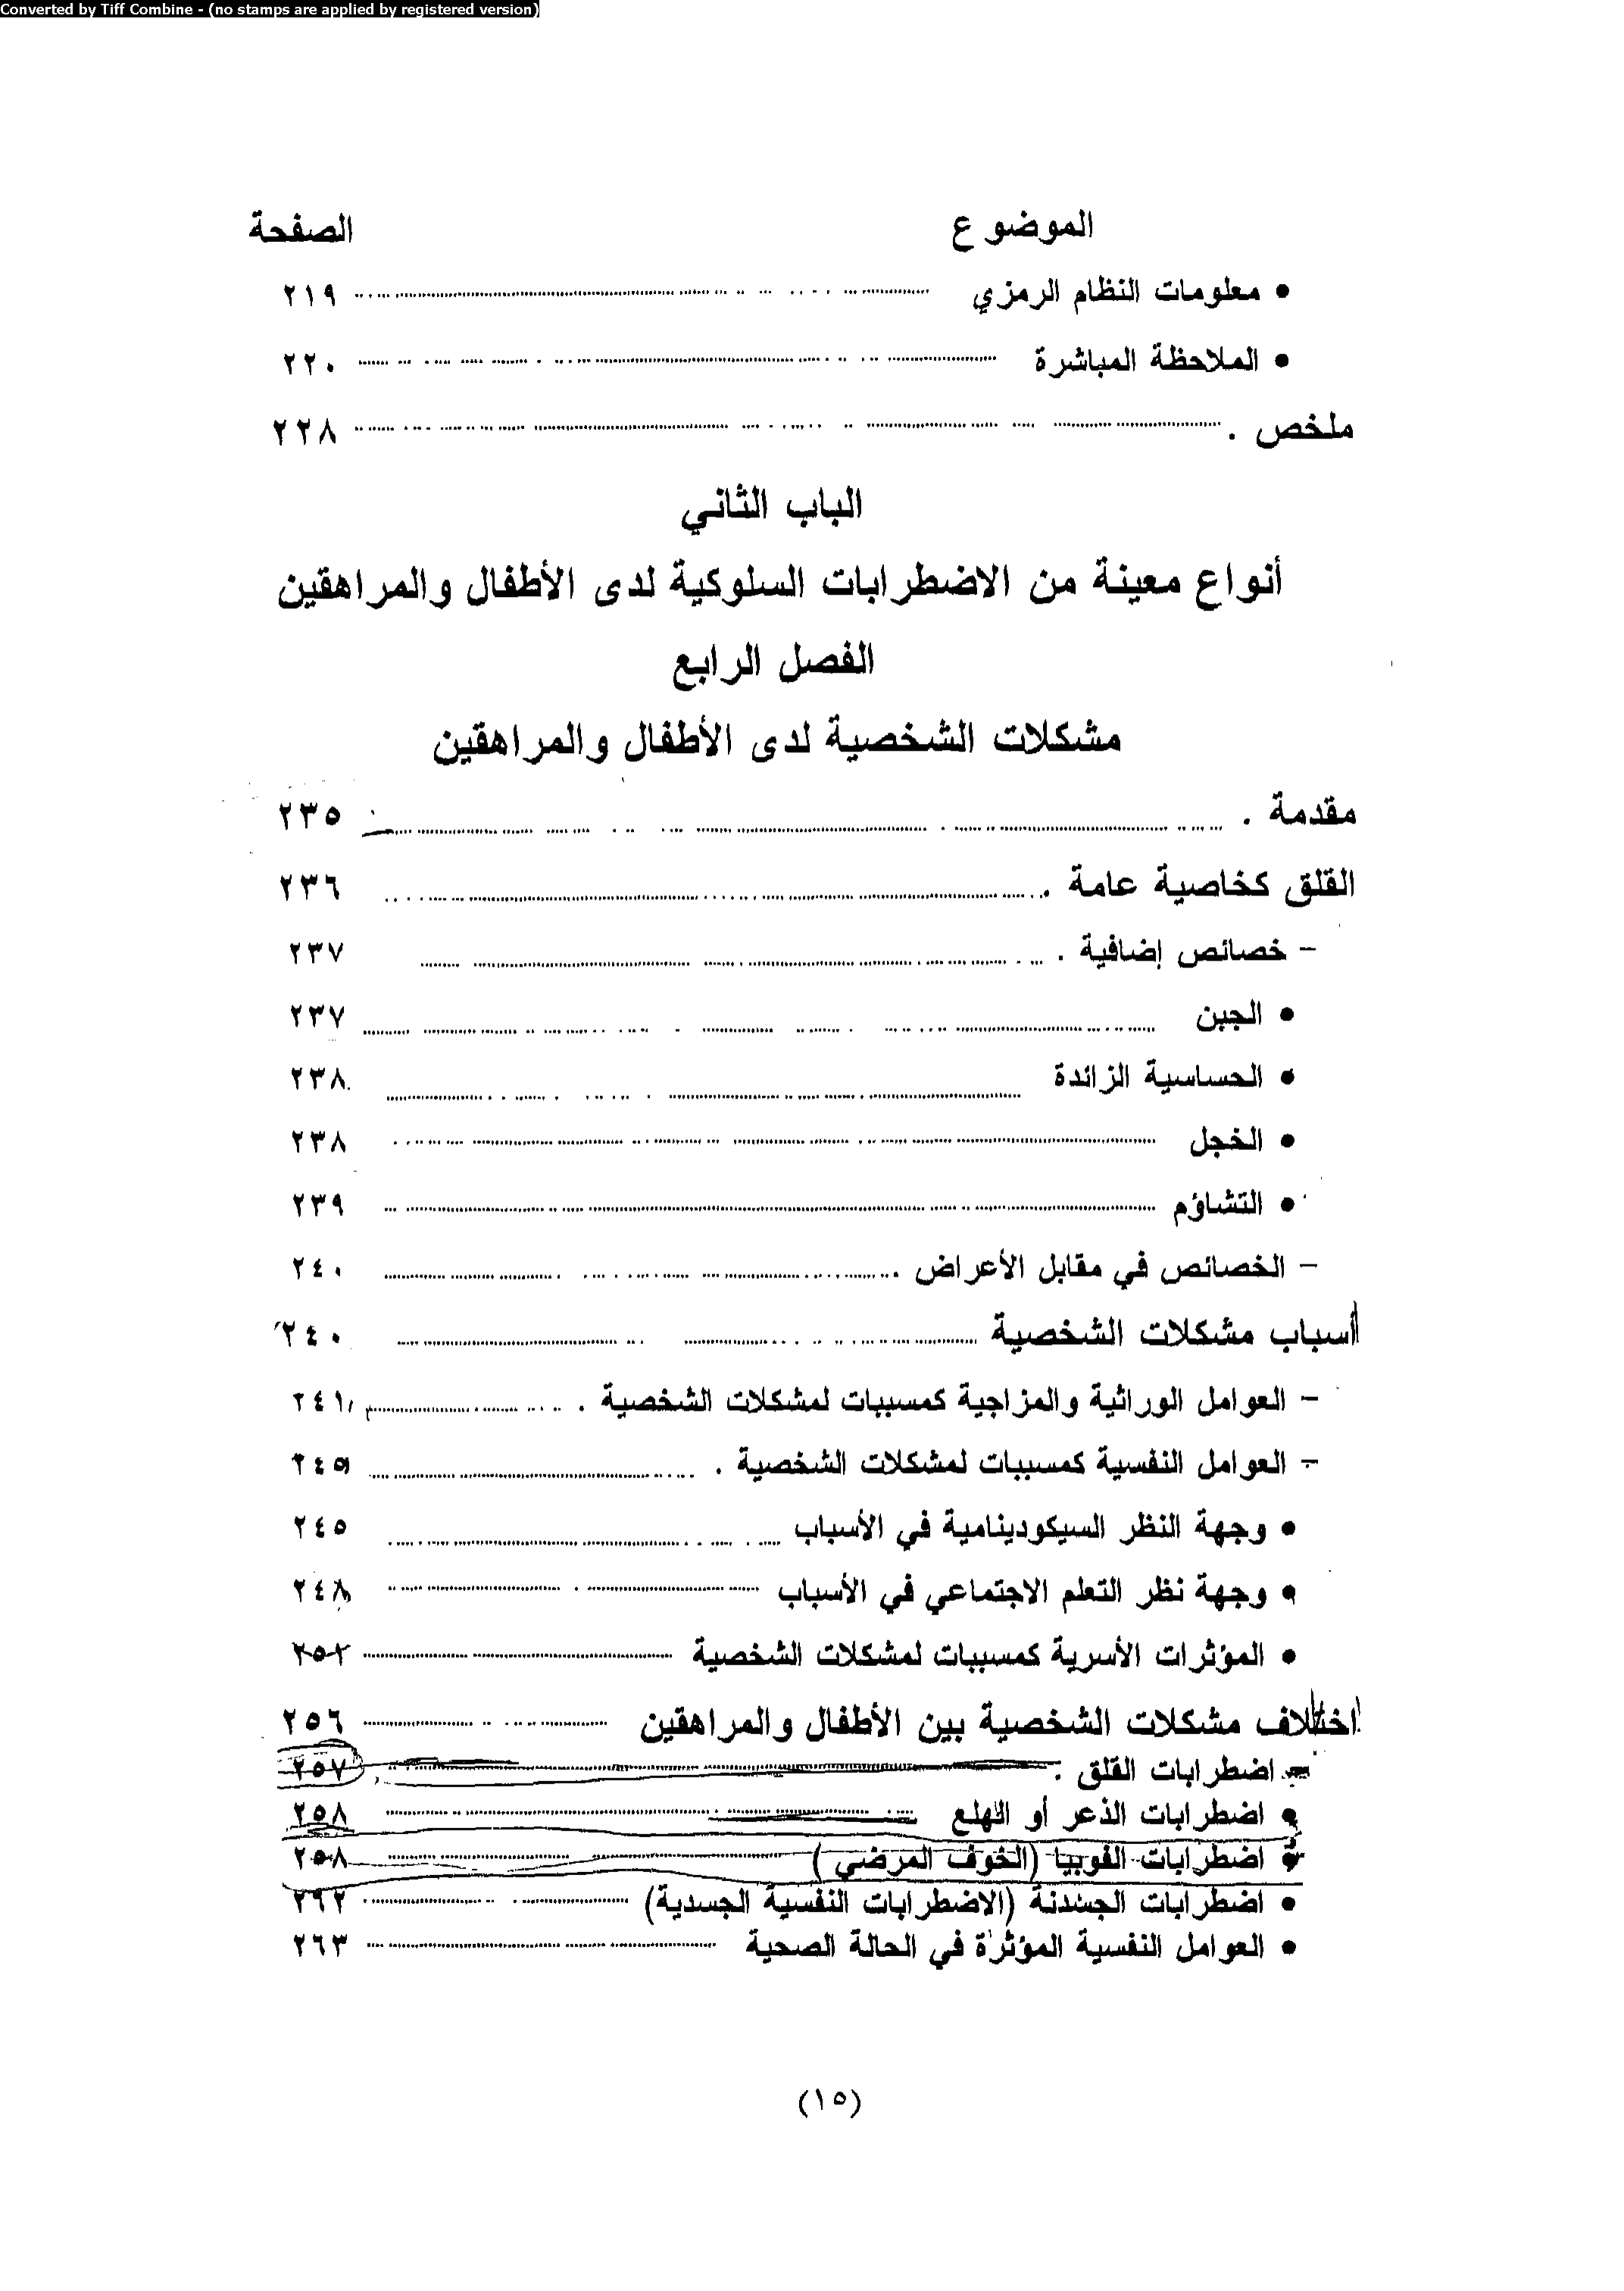 Converted by Tiff Combine - (no stamps are applied by registered version)
الموضوع الصفحة
• معلومات النظام الرمزي ٢١٩
• الملاحظة المباشرة ٢٢٠
ملخص . ٢٢٨
الباب الثاني
أنواع معينة من الاضطرابات السلوكية لدى الأطفال والمراهقين
الفصل الرابع
مشكلات الشخصية لدى الأطفال والمراهقين
مقدمة . ٢٣٥
القلق كخاصية عامة . ٢٣٦
- خصائص إضافية . ٢٣٧
• الجبن ٢٣٧
• الحساسية الزائدة ٢٣٨
• الخجل ٢٣٨
• التشاؤم ٢٣٩
- الخصائص في مقابل الأعراض . ٢٤٠
أسباب مشكلات الشخصية ٢٤٠
- العوامل الوراثية والمزاجية كمسببات لمشكلات الشخصية . ٢٤١
- العوامل النفسية كمسببات لمشكلات الشخصية . ٢٤٥
• وجهة النظر السيكودينامية في الأسباب ٢٤٥
• وجهة نظر التعلم الاجتماعي في الأسباب ٢٤٨
• المؤثرات الأسرية كمسببات لمشكلات الشخصية ٢٥٢
اختلاف مشكلات الشخصية بين الأطفال والمراهقين ٢٥٦
- اضطرابات القلق . ٢٥٧
• اضطرابات الذعر أو الهلع ٢٥٨
• اضطرابات الفوبيا (الخوف المرضي) ٢٥٨
• اضطرابات الجسدنة (الاضطرابات النفسية الجسدية) ٢٦٢
• العوامل النفسية المؤثرة في الحالة الصحية ٢٦٣
(١٥)